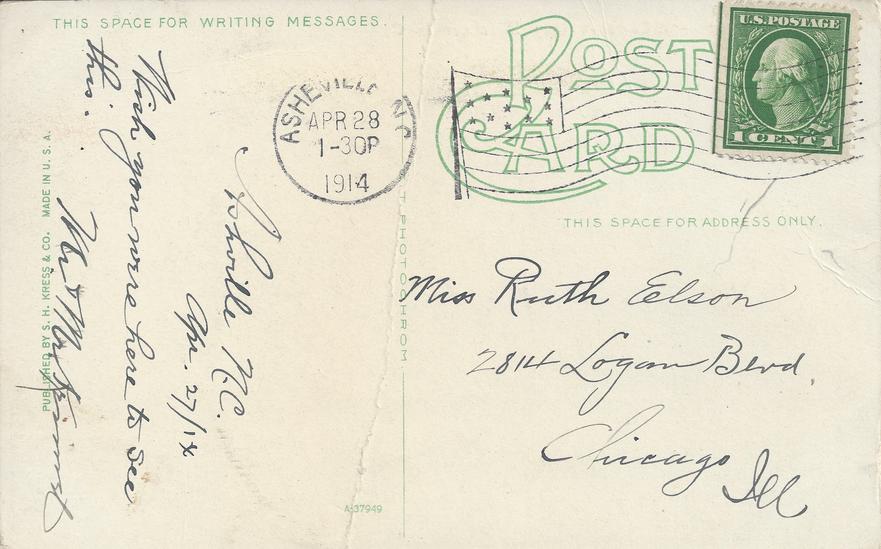 THIS SPACE FOR WRITING MESSAGES.
POST
CARD
U.S. POSTAGE
1 CENT 1
ASHEVILLE N.C.
APR 28
1-30P
1914
THIS SPACE FOR ADDRESS ONLY.
Ashville N.C.
Apr. 27/14
Wish you were here to see
this.
Mr & Mrs
Miss Ruth Elson
2814 Logan Blvd.
Chicago
Ill
PUBLISHED BY S. H. KRESS & CO. MADE IN U. S. A.
PHOTOCHROM
A-37949